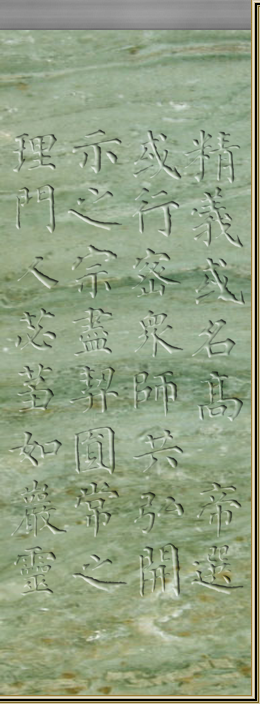 精義或名高　帝選
或行密衆師共弘開
示之宗盡契圓常之
理門人苾蒭如巖靈